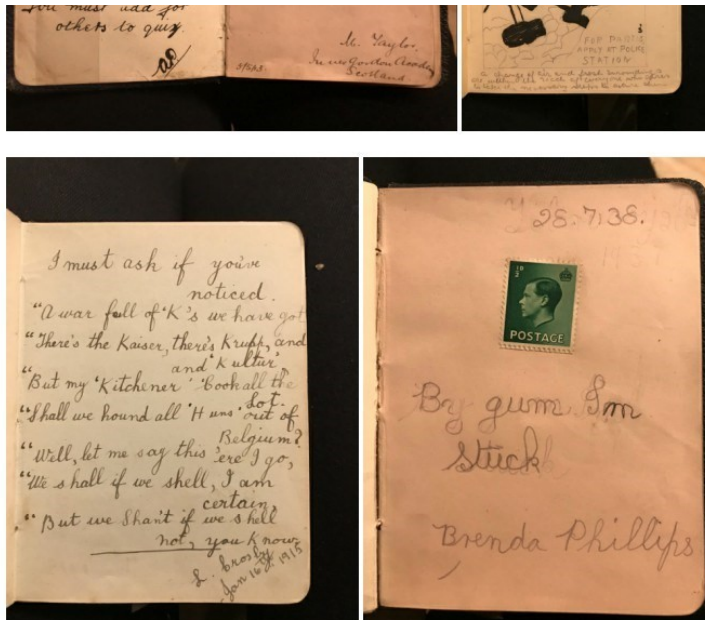 You must add for
others to quiz.
M. Taylor.
Invergordon Academy
Scotland
FOR PARTIS
APPLY AT POLICE
STATION
I must ask if you've
noticed.
"A war full of 'K's we have got
"There's the Kaiser, there's Krupp, and
and 'Kultur',
"But my 'Kitchener' 'Cook all the
Lot.
"Shall we hound all 'Huns' out of
Belgium?
"Well, let me say this 'ere I go,
"We shall if we shell, I am
certain,
"But we Shan't if we shell
not, you know
L. Crosby
Jan 16th 1915
28.7.38.
½D
POSTAGE
By gum I'm
stuck
Brenda Phillips